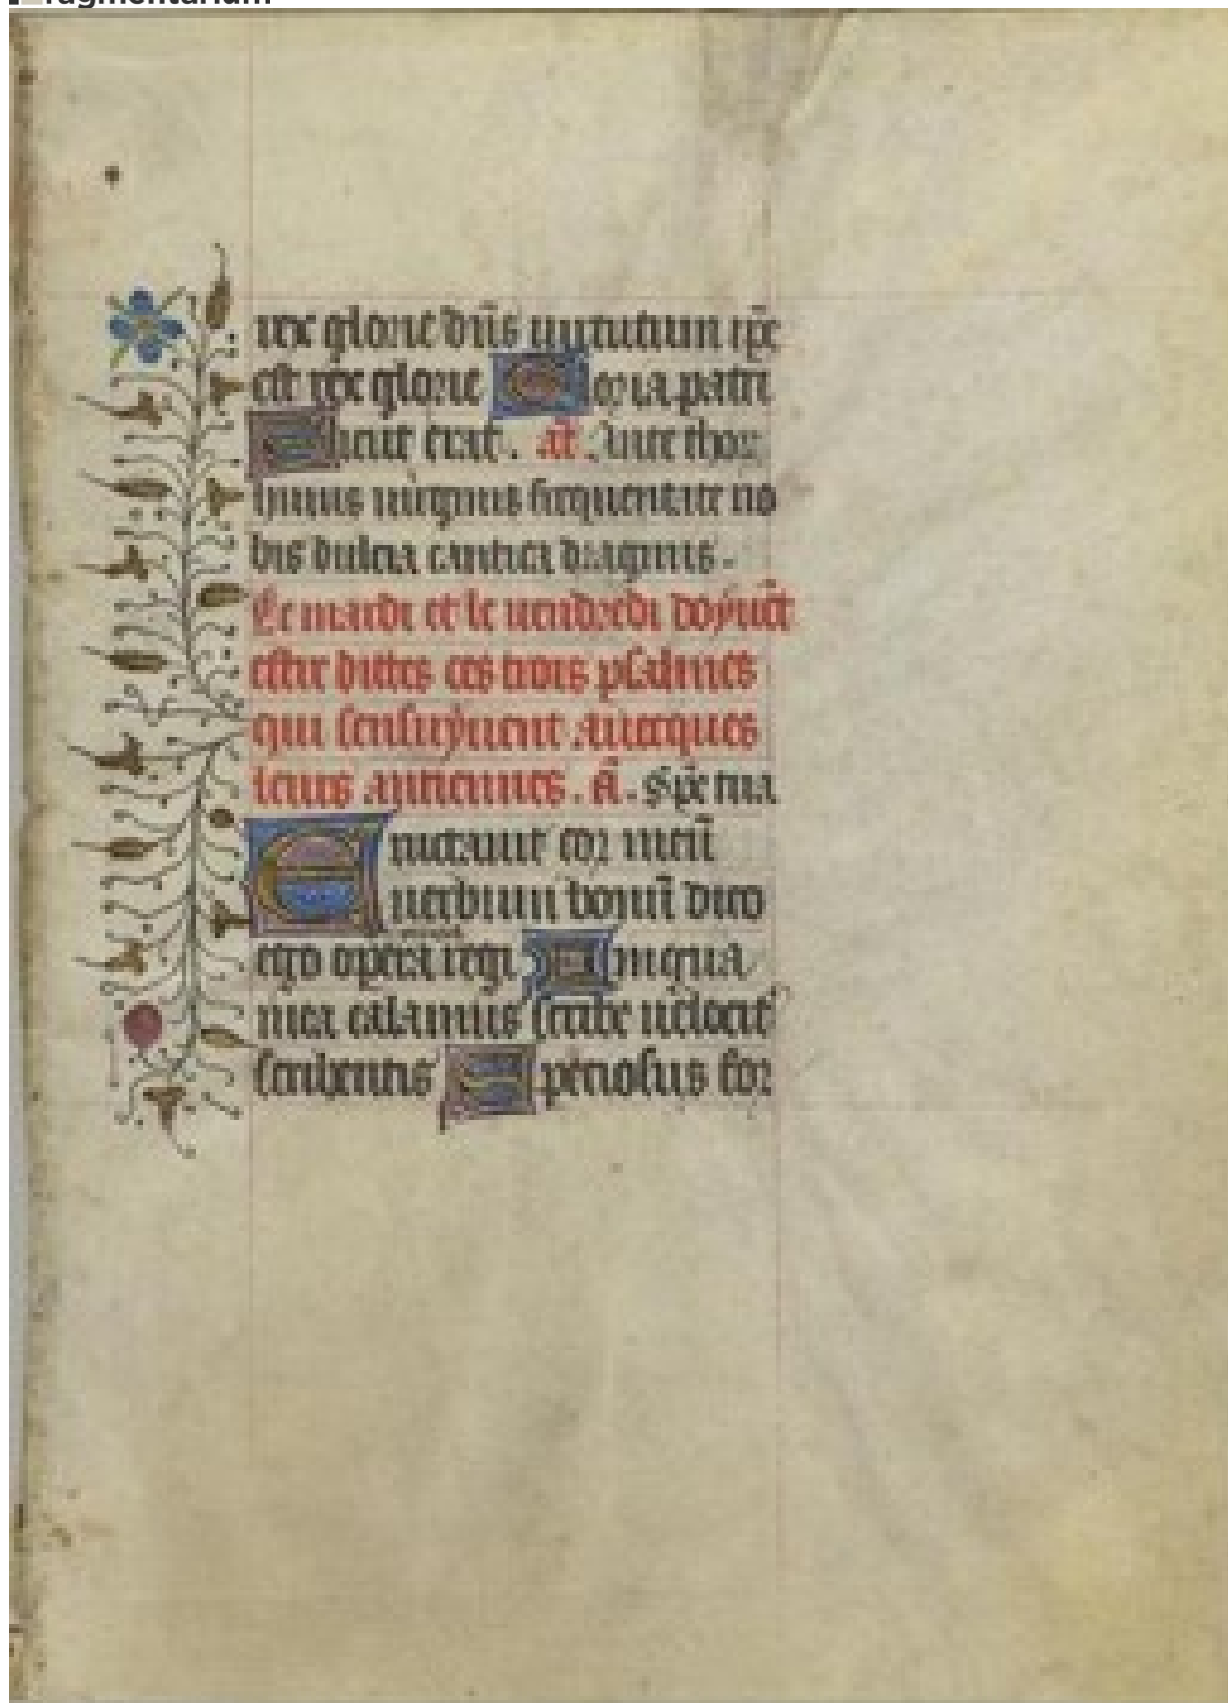 ragmentarium
rex glorie dn̄s uirtutum ip̄e
est rex glorie Gloria patri
Sicut erat. añ Ante thor
hujus uirginis frequentate no
bis dulcia cantica dragmis.
Le mardi et le uendredi doyuēt
estre dittes ces trois psalmes
qui sensuyuent auecques
leurs antiennes. Añ. Specie tua
Eructauit cor meū
uerbum bonū dico
ego opera regi Lingua
mea calamus scribe uelocit᷑
scribentis Speciosus for